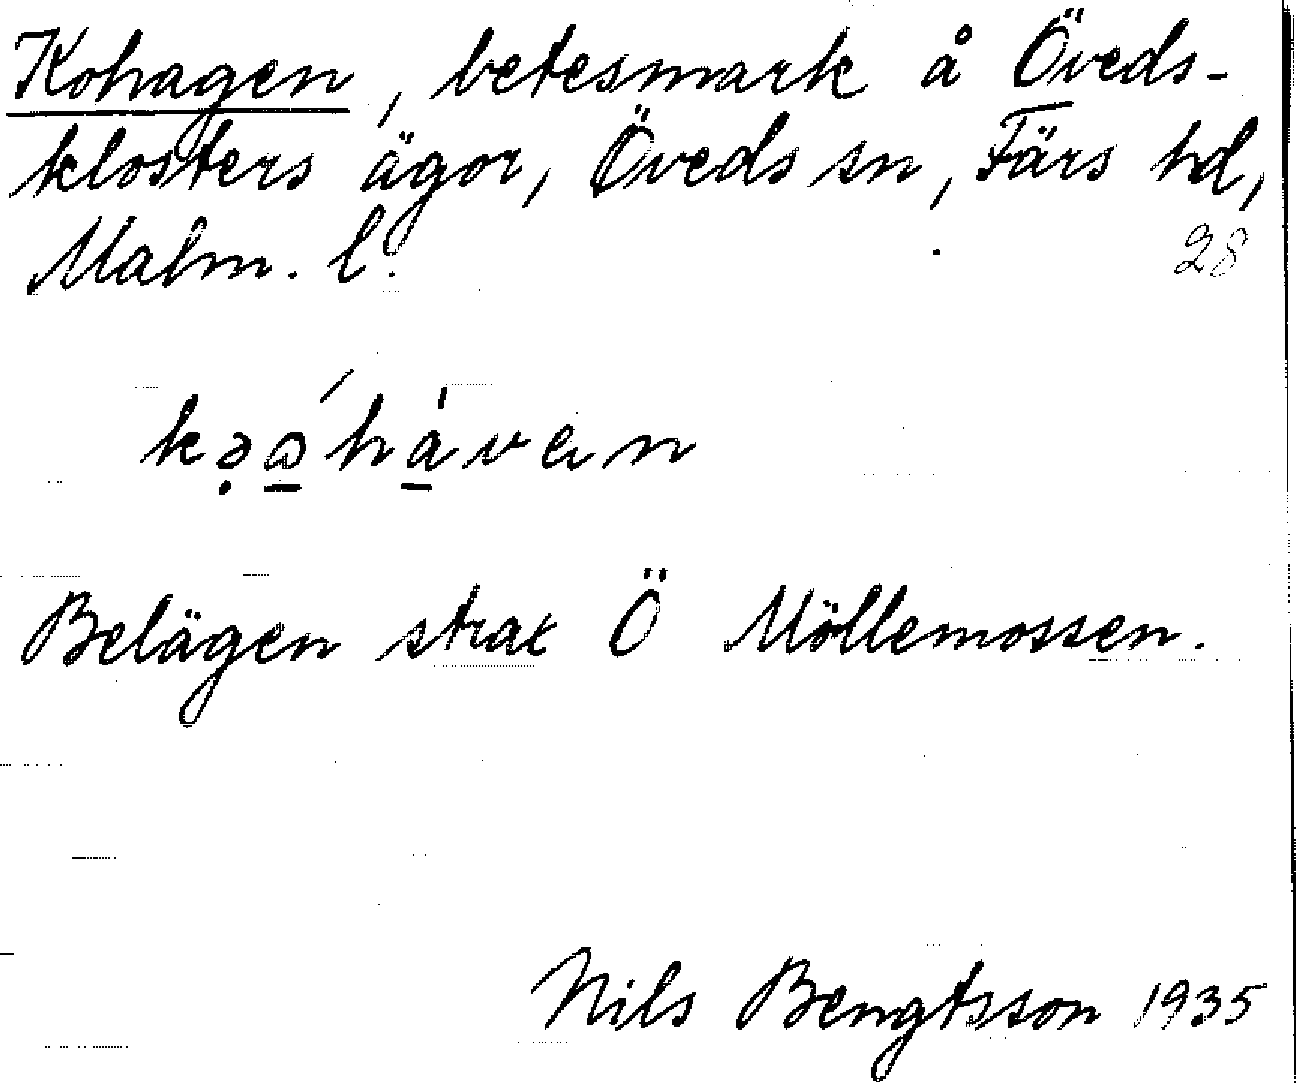 Kohagen, betesmark å Öveds-
klosters ägor, Öveds sn, Färs hd,
Malm. l.
28
Belägen strax Ö Möllemossen.
Nils Bengtsson 1935